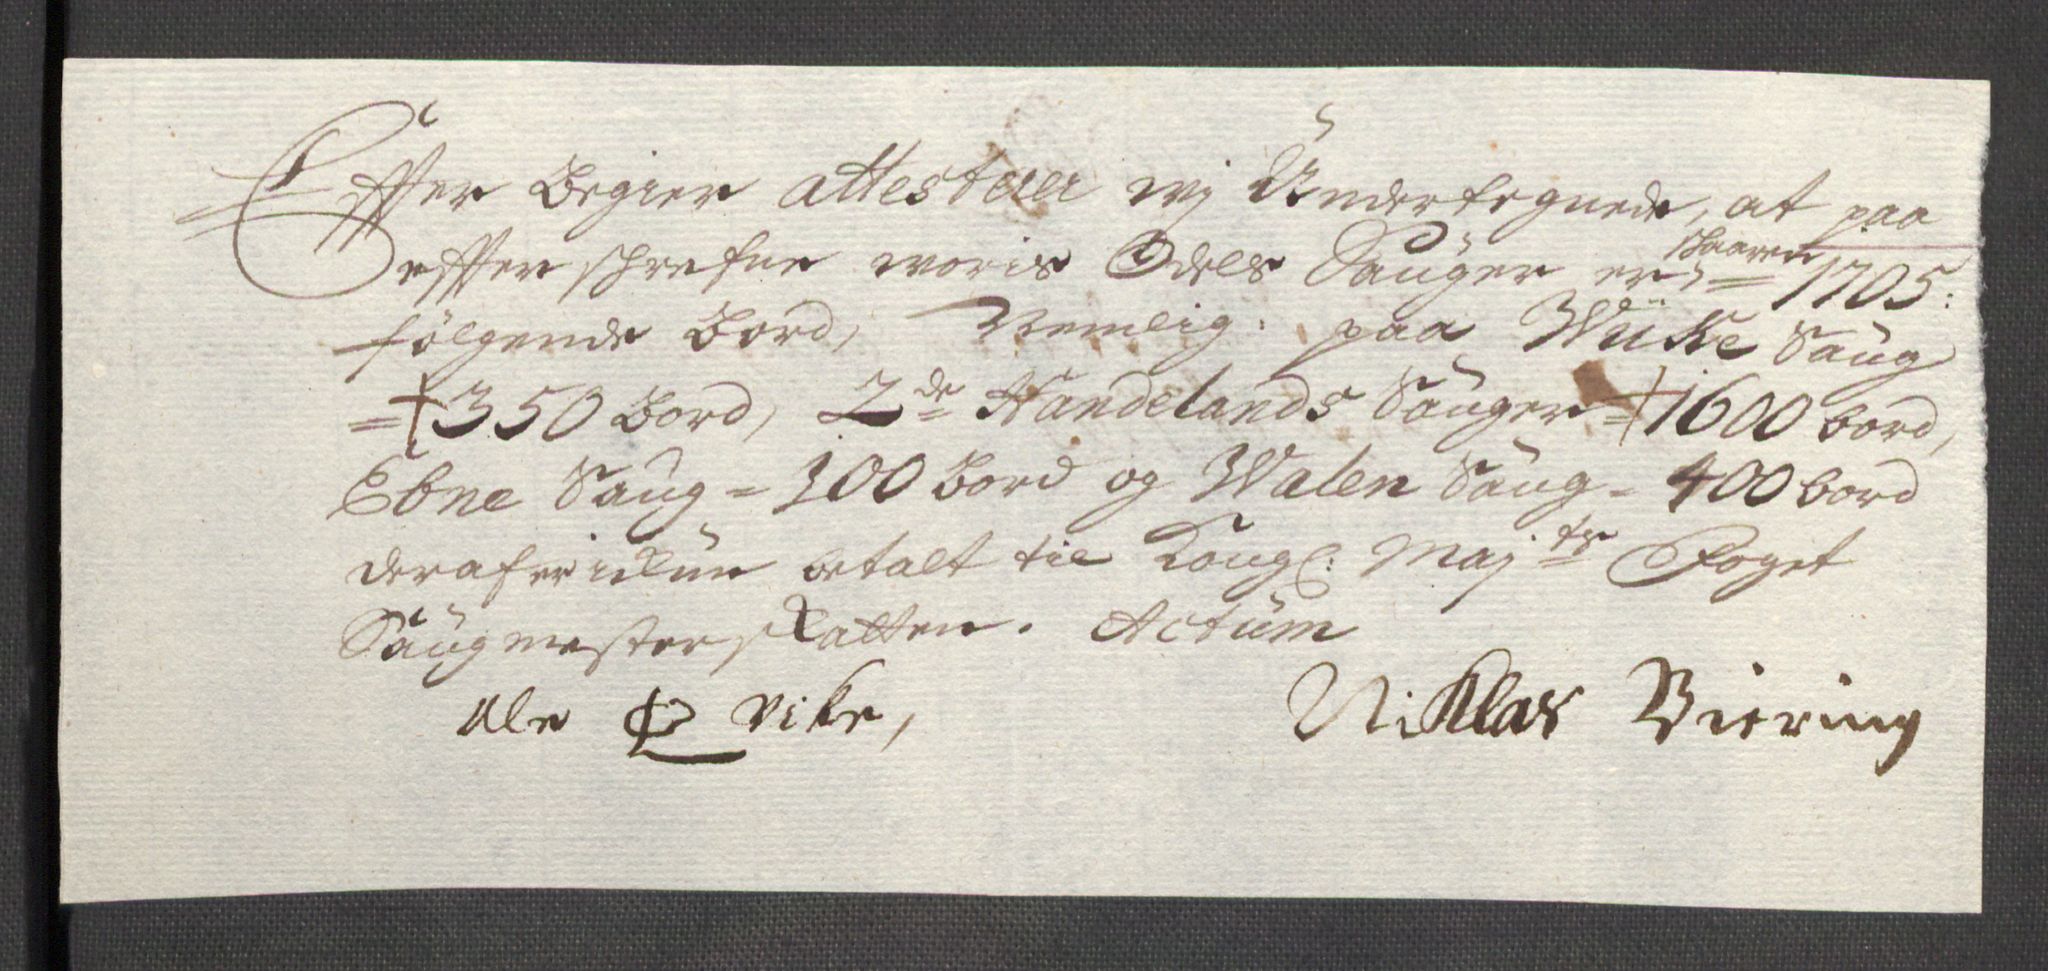 Effter Begier attesterer wj Undertegnede, at paa
effterschrefne woris Odels Sauger er, skaaren = 1705:
følgende Bord, Nemlig. paa Wiike Saug
= 350 Bord, 2de Handelands Sauger = 1600 bord,
Ebne Saug = 100 Bord og Walen Saug = 400 bord
deraf wi betalt til Kongl: Majts Foget
Saugmesterskatten. Actum
Ole Vike, Niklas Viering